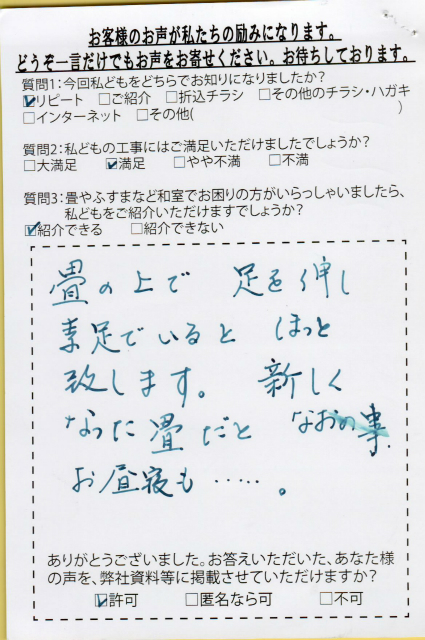 お客様のお声が私たちの励みになります。
どうぞ一言だけでもお声をお寄せください。お待ちしております。
質問1:今回私どもをどちらでお知りになりましたか?
☑リピート □ご紹介 □折込チラシ □その他のチラシ・ハガキ
□インターネット □その他( )
質問2:私どもの工事にはご満足いただけましたでしょうか?
□大満足 ☑満足 □やや不満 □不満
質問3:畳やふすまなど和室でお困りの方がいらっしゃいましたら、
私どもをご紹介いただけますでしょうか?
☑紹介できる □紹介できない
畳の上で 足を伸し
素足でいると ほっと
致します。 新しく
なった畳だと なおの事
お昼寝も……。
ありがとうございました。お答えいただいた、あなた様
の声を、弊社資料等に掲載させていただけますか?
☑許可 □匿名なら可 □不可